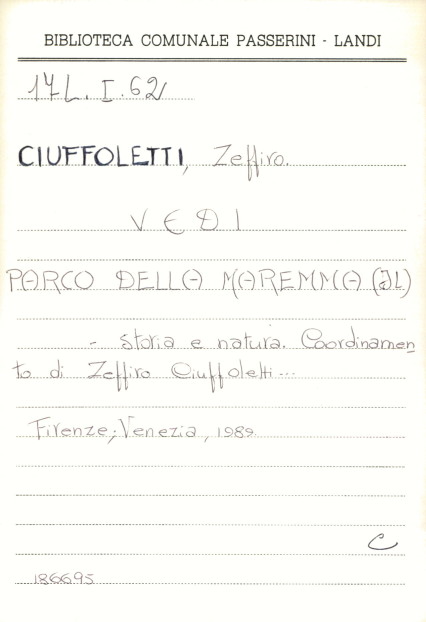 BIBLIOTECA COMUNALE PASSERINI - LANDI
17L.I.62
CIUFFOLETTI, Zeffiro.
VEDI
PARCO DELLA MAREMMA (IL)
- Storia e natura. Coordinamen
to di Zeffiro Ciuffoletti...
Firenze; Venezia, 1989.
C
186695